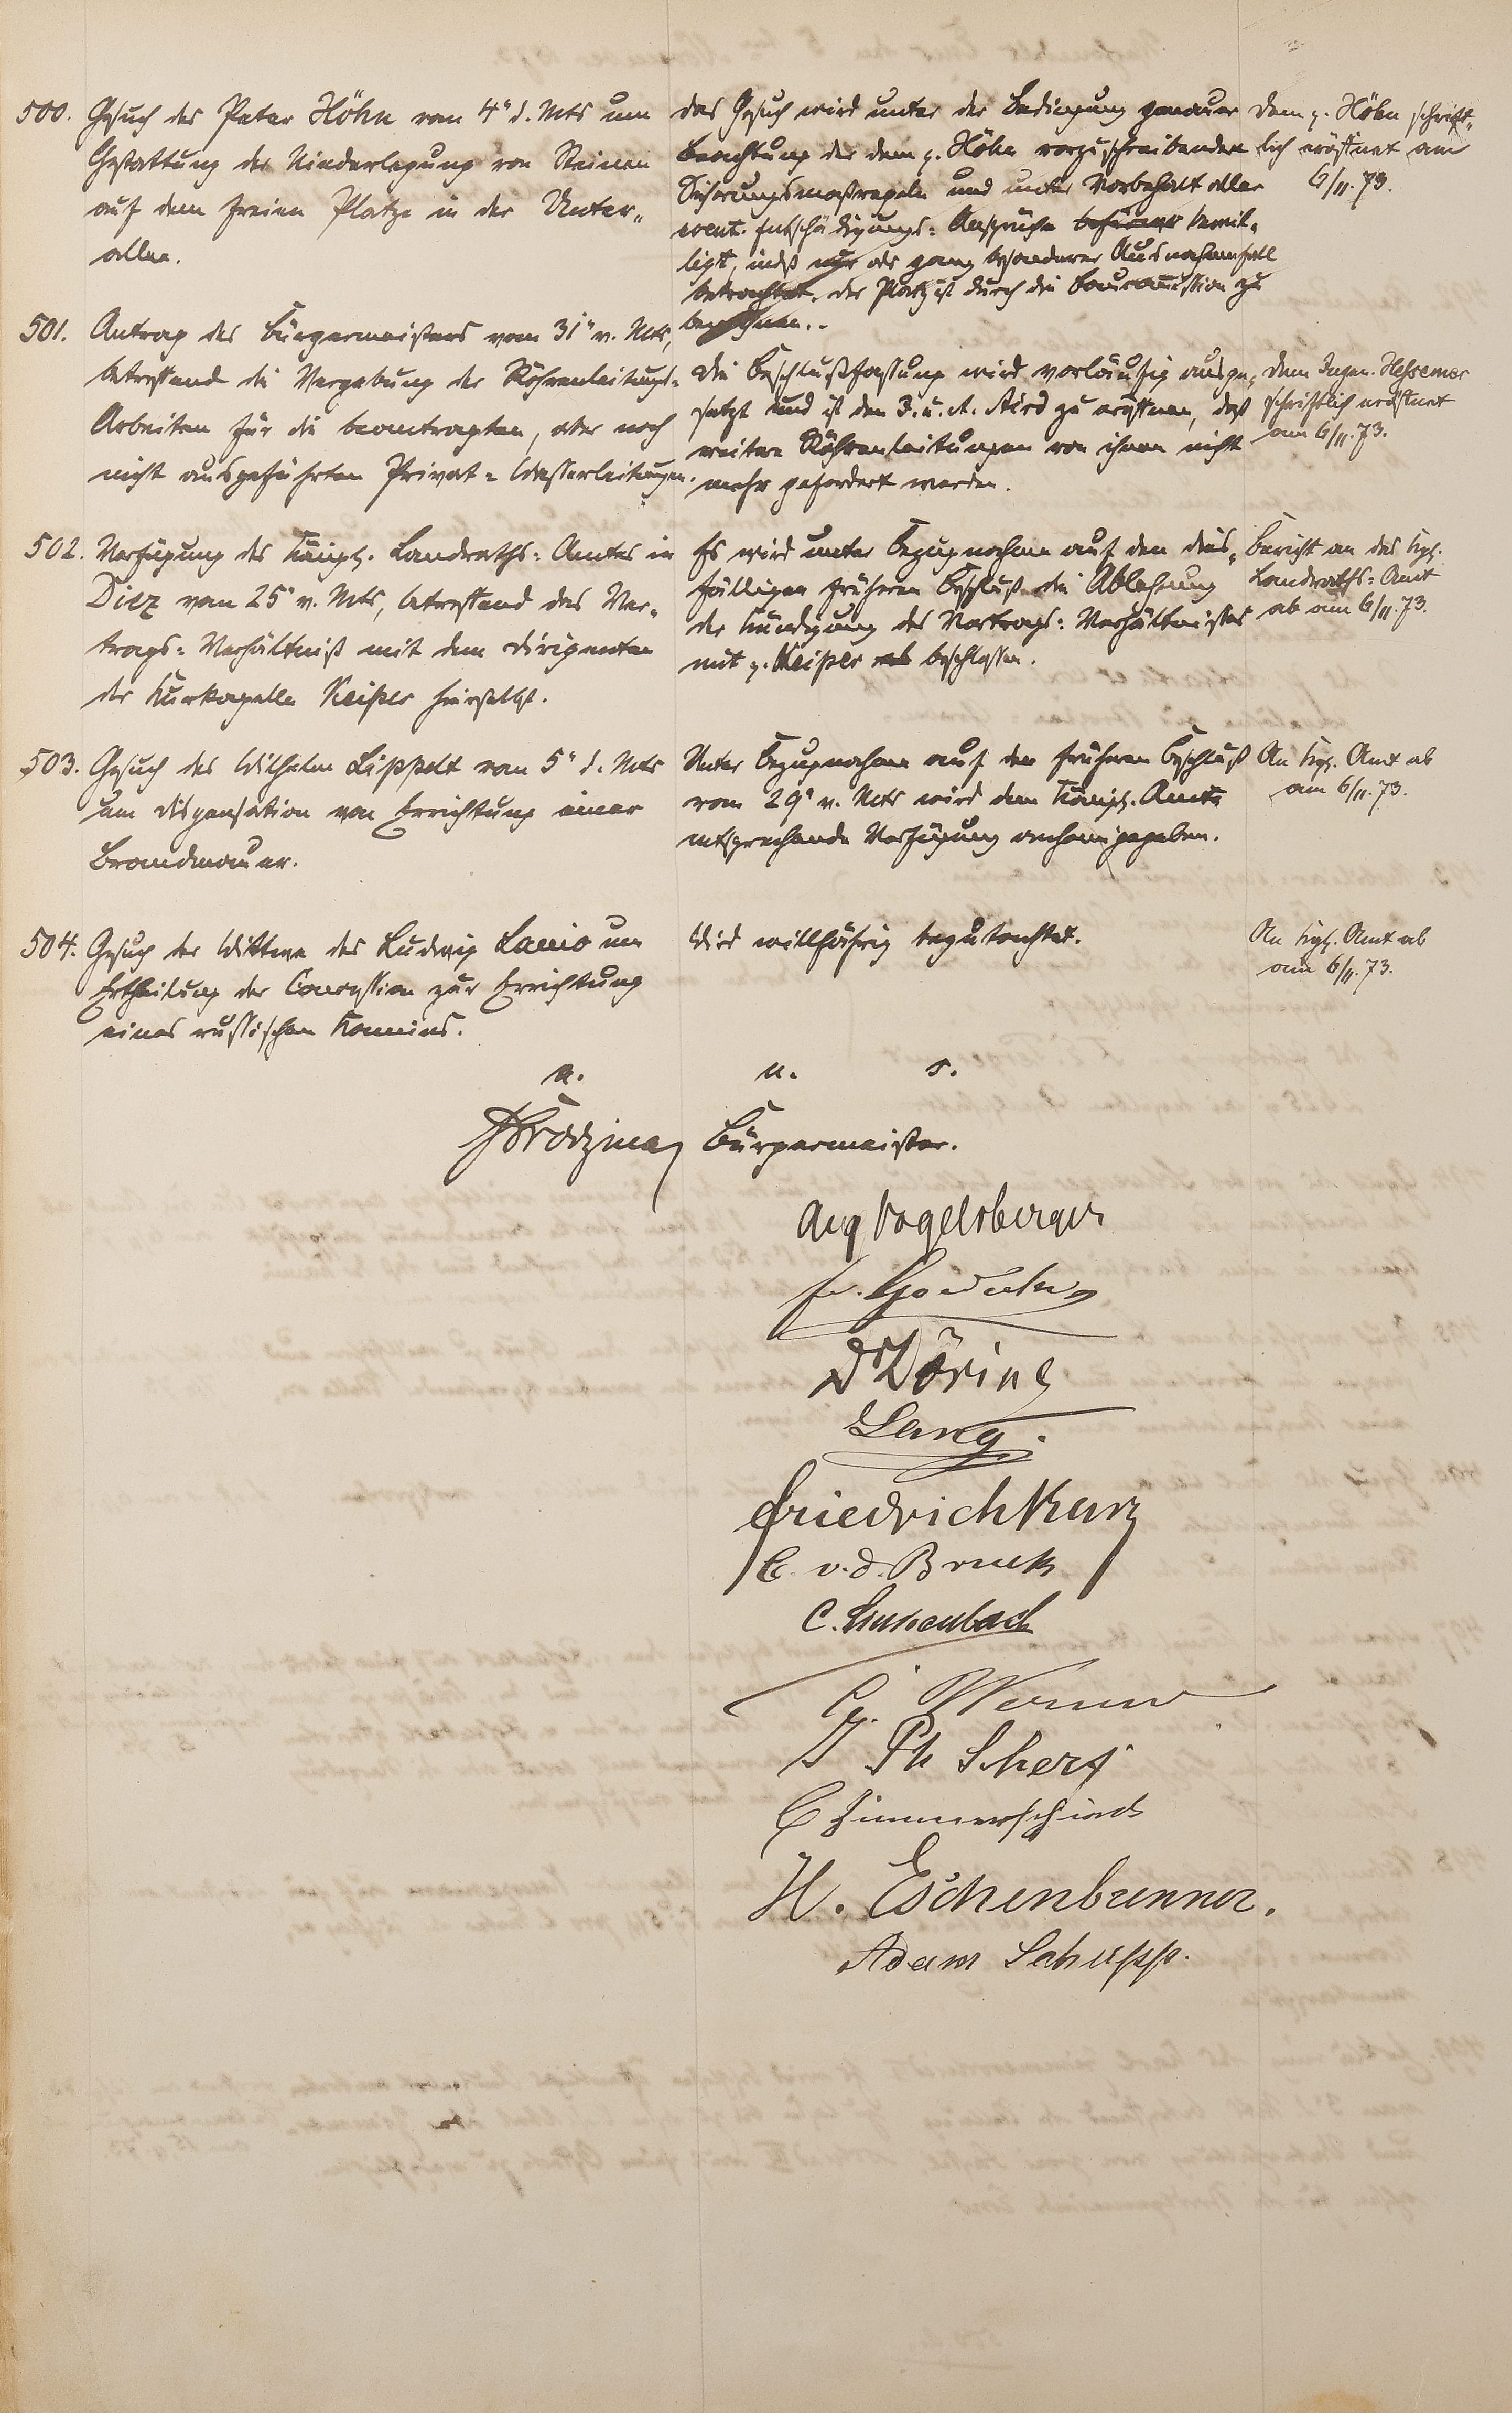 500. Gesuch des Peter Höhn vom 4" d. Mts um
Gestattung der Niederlegung von Steinen
auf dem freien Platze in der Unter„
allee.
Das Gesuch wird unter der Bedingung genauer
Beachtung der dem p. Höhn vorzuschreibenden
Sicherungsmaßregeln und unter Vorbehalt aller
event. Entschädigungs= Ansprüche bewil„
ligt, indeß nur als ganz besonderer Ausnahmefall
betrachtet. Der Platz ist durch die Baucommission zu
bezeichnen.
Dem p. Höhn schrift„
lich eröffnet am
6/11. 73.
501. Antrag des Bürgermeisters vom 31" v. Mts,
betreffend die Vergebung der Röhrenleitungs=
Arbeiten für die beantragten, aber noch
nicht ausgeführten Privat= Wasserleitungen.
Die Beschlußfassung wird vorläufig ausge„
setzt und ist den J. u. A. Aird zu eröffnen, daß
weitere Röhrenleitungen von ihnen nicht
mehr gefordert werden.
Dem Ingen. Hessemer
schriftlich eröffnet
am 6/11. 73.
502. Verfügung des Königl. Landraths= Amtes in
Diez vom 25" v. Mts, betreffend das Ver„
trags= Verhältniß mit dem Dirigenten
der Kurkapelle Keiper hierselbst.
Es wird unter Bezugnahme auf den dies„
fälligen früheren Beschluß die Ablehnung
der Kündigung des Vertrags= Verhältnisses
mit p. Keiper beschlossen.
Bericht an das Kgl.
Landraths= Amt
ab am 6/11. 73.
503. Gesuch des Wilhelm Lippelt vom 5" d. Mts
um Dispensation von Errichtung einer
Brandmauer.
Unter Bezugnahme auf den früheren Beschluß
vom 29" v. Mts wird dem Königl. Amte
entsprechende Verfügung anheimgegeben.
An Kgl. Amt ab
am 6/11. 73.
504. Gesuch der Wittwe des Ludwig Lanio um
Ertheilung der Concession zur Errichtung
eines russischen Kamins.
Wird willfährig begutachtet.
An Kgl. Amt ab
am 6/11. 73.
a. u. s.
Bürgermeister.
Aug Vogelsberger
Dr Döring
Lang.
Friedrich Kurz
C. v. d. Bruck
C. Linkenbach
G. Werner
J Ph Scherf
C Zimmerschied
H. Eschenbrenner.
Adam Schupp.